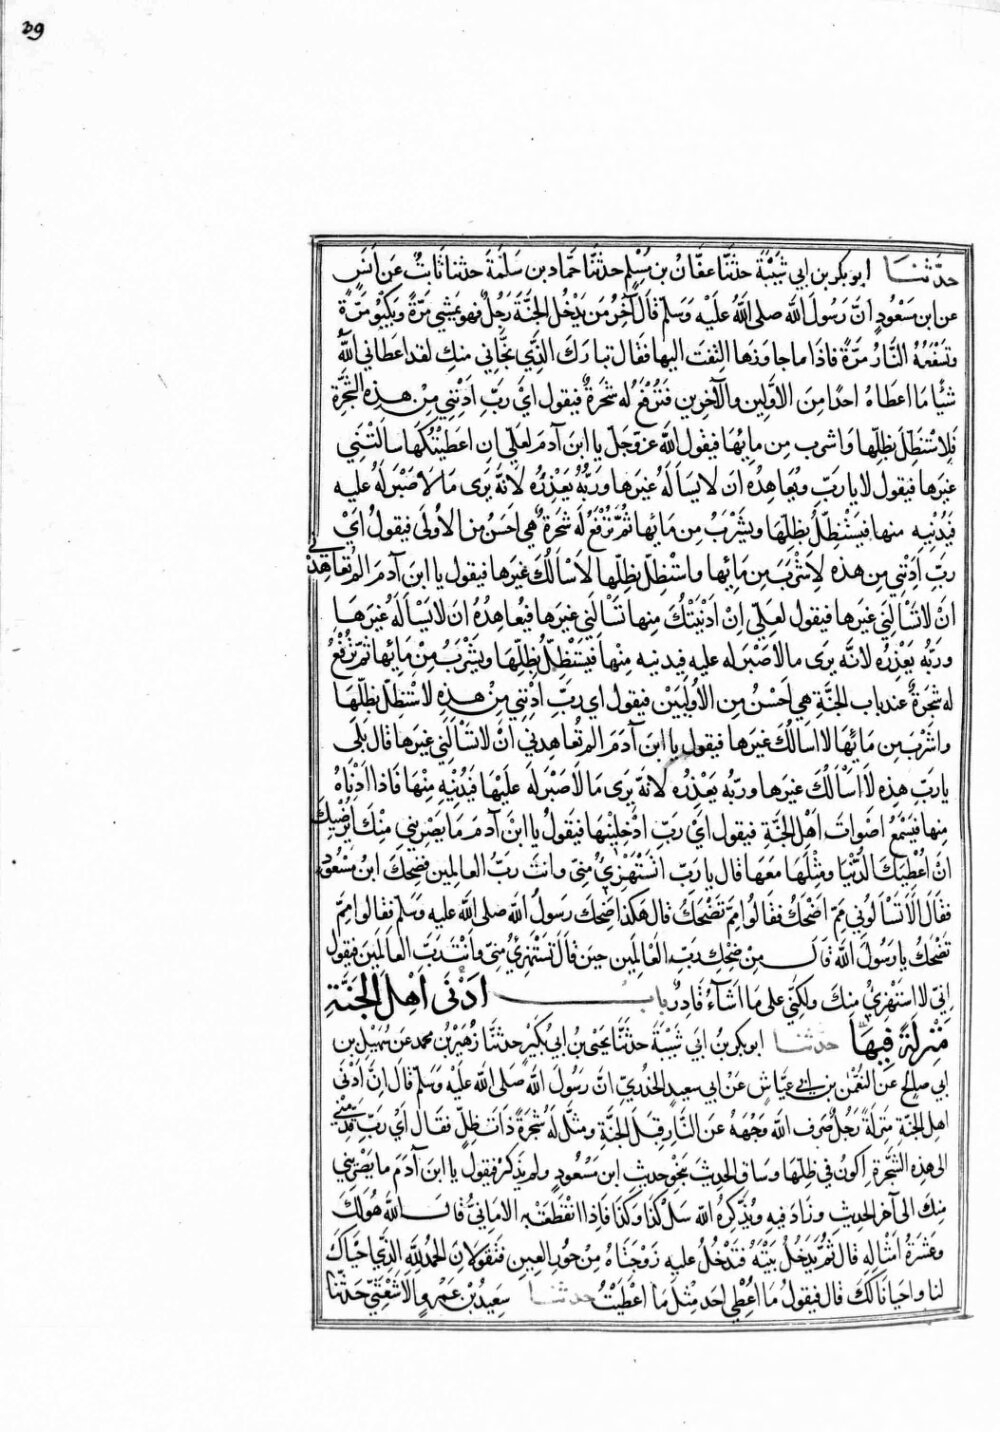 ٣٩
حدثنا ابو بكر بن ابي شيبة حدثنا عفان بن مسلم حدثنا حماد بن سلمة حدثنا ثابت عن انس
عن ابن مسعود ان رسول الله صلى الله عليه وسلم قال آخر من يدخل الجنة رجل فهو يمشي مرة ويكبو مرة
وتسفعه النار مرة فاذا ما جاوزها التفت اليها فقال تبارك الذي نجاني منك لقد اعطاني الله
شيئا ما اعطاه احدا من الاولين والآخرين فترفع له شجرة فيقول اي رب ادنني من هذه الشجرة
فلاستظل بظلها واشرب من مائها فيقول الله عز وجل يا ابن آدم لعلي ان اعطيتكها سالتني
غيرها فيقول لا يا رب ويعاهده ان لا يساله غيرها وربه يعذره لانه يرى ما لا صبر له عليه
فيدنيه منها فيستظل بظلها ويشرب من مائها ثم ترفع له شجرة هي احسن من الاولى فيقول اي
رب ادنني من هذه لاشرب من مائها واستظل بظلها لا اسالك غيرها فيقول يا ابن آدم الم تعاهدني
ان لا تسالني غيرها فيقول لعلي ان ادنيتك منها تسالني غيرها فيعاهده ان لا يساله غيرها
وربه يعذره لانه يرى ما لا صبر له عليه فيدنيه منها فيستظل بظلها ويشرب من مائها ثم ترفع
له شجرة عند باب الجنة هي احسن من الاوليين فيقول اي رب ادنني من هذه لاستظل بظلها
واشرب من مائها لا اسالك غيرها فيقول يا ابن آدم الم تعاهدني ان لا تسالني غيرها قال بلى
يا رب هذه لا اسالك غيرها وربه يعذره لانه يرى ما لا صبر له عليها فيدنيه منها فاذا ادناه
منها فيسمع اصوات اهل الجنة فيقول اي رب ادخلينها فيقول يا ابن آدم ما يصريني منك ايرضيك
ان اعطيك الدنيا ومثلها معها قال يا رب اتستهزئ مني وانت رب العالمين فضحك ابن مسعود
فقال الا تسالوني مم اضحك فقالوا مم تضحك قال هكذا ضحك رسول الله صلى الله عليه وسلم فقالوا مم
تضحك يا رسول الله قال من ضحك رب العالمين حين قال اتستهزئ مني وانت رب العالمين فيقول
اني لا استهزئ منك ولكني على ما اشاء قادر باب ادنى اهل الجنة
منزلة فيها حدثنا ابو بكر بن ابي شيبة حدثنا يحيى بن ابي بكير حدثنا زهير بن محمد عن سهيل بن
ابي صالح عن النعمن بن ابي عياش عن ابي سعيد الخدري ان رسول الله صلى الله عليه وسلم قال ان ادنى
اهل الجنة منزلة رجل صرف الله وجهه عن النار قبل الجنة ومثل له شجرة ذات ظل فقال اي رب قدمني
الى هذه الشجرة اكون في ظلها وساق الحديث بنحو حديث ابن مسعود ولم يذكر فيقول يا ابن آدم ما يصريني
منك الى آخر الحديث وزاد فيه ويذكره الله سل كذا وكذا فاذا انقطعت به الاماني قال الله هو لك
وعشرة امثاله قال ثم يدخل بيته فتدخل عليه زوجتاه من حور العين فتقولان الحمد لله الذي احياك
لنا واحيانا لك قال فيقول ما اعطي احد مثل ما اعطيت حدثنا سعيد بن عمرو الاشعثي حدثنا